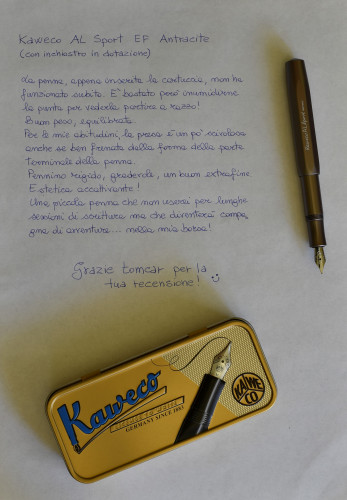 Kaweco AL Sport EF Antracite
(con inchiostro in dotazione)
La penna, appena inserita la cartuccia, non ha
funzionato subito. E' bastato però inumidirne
la punta per vederla partire a razzo!
Buon peso, equilibrata.
Per le mie abitudini, la presa è un po' scivolosa
anche se ben frenata dalla forma della parte
terminale della penna.
Pennino rigido, gradevole, un buon extrafine
Estetica accattivante!
Una piccola penna che non userei per lunghe
sessioni di scrittura ma che diventerà compa
gna di avventure... nella mia borsa!
Grazie tomcar per la
tua recensione!
Kaweco
GERMANY SINCE 1883
KAWE
CO